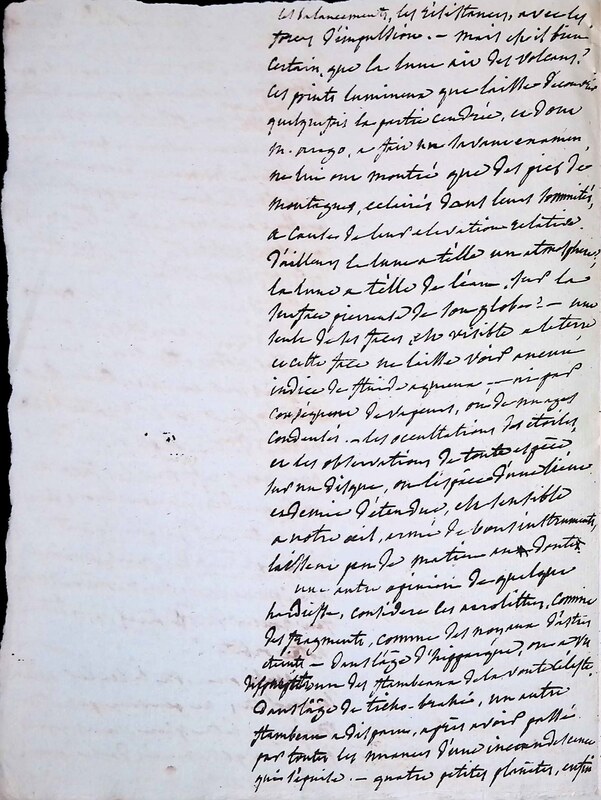 les balancements, les résistances, avec les
forces d'impulsion. – mais est il bien
certain, que la lune ait des volcans?
Ces points lumineux que laisse découvrir
quelquefois la partie cendrée, et dont
m. arago, a fait un savant examen
ne lui ont montré que des pics de
montagnes, eclairés dans leurs sommités,
a cause de leur elevation relative.
d'ailleurs la lune a t'elle un atmosphère?
la lune a t'elle de l'eau, sur la
surface pierreuse de son globe? – une
seule de ses faces, est visible a la terre
et cette face ne laisse voir aucun
indice de fluide aqueux – ni par
conséquent de vapeurs, ou de nuages
condensés. – les occultations des étoiles
et les observations de toute espèce
sur un disque, ou l'espèce d'une lieue
et demie d'étendue, est sensible
a notre oeil, armé de bons instruments,
laissent peu de matière aux doutes.
une autre opinion de quelque
hardiesse, considère les aerolithes, comme
des fragments, comme des noyaux d'astres
éteints – dans l'âge d'hipparque, on a vu
disparaitre un des flambeaux de la voute céleste.
Dans l'âge de ticho-brahé, un autre
flambeau a disparu, après avoir passé
par toutes les nuances d'une incandescence
qui s'épuise. – quatre petites planètes, enfin